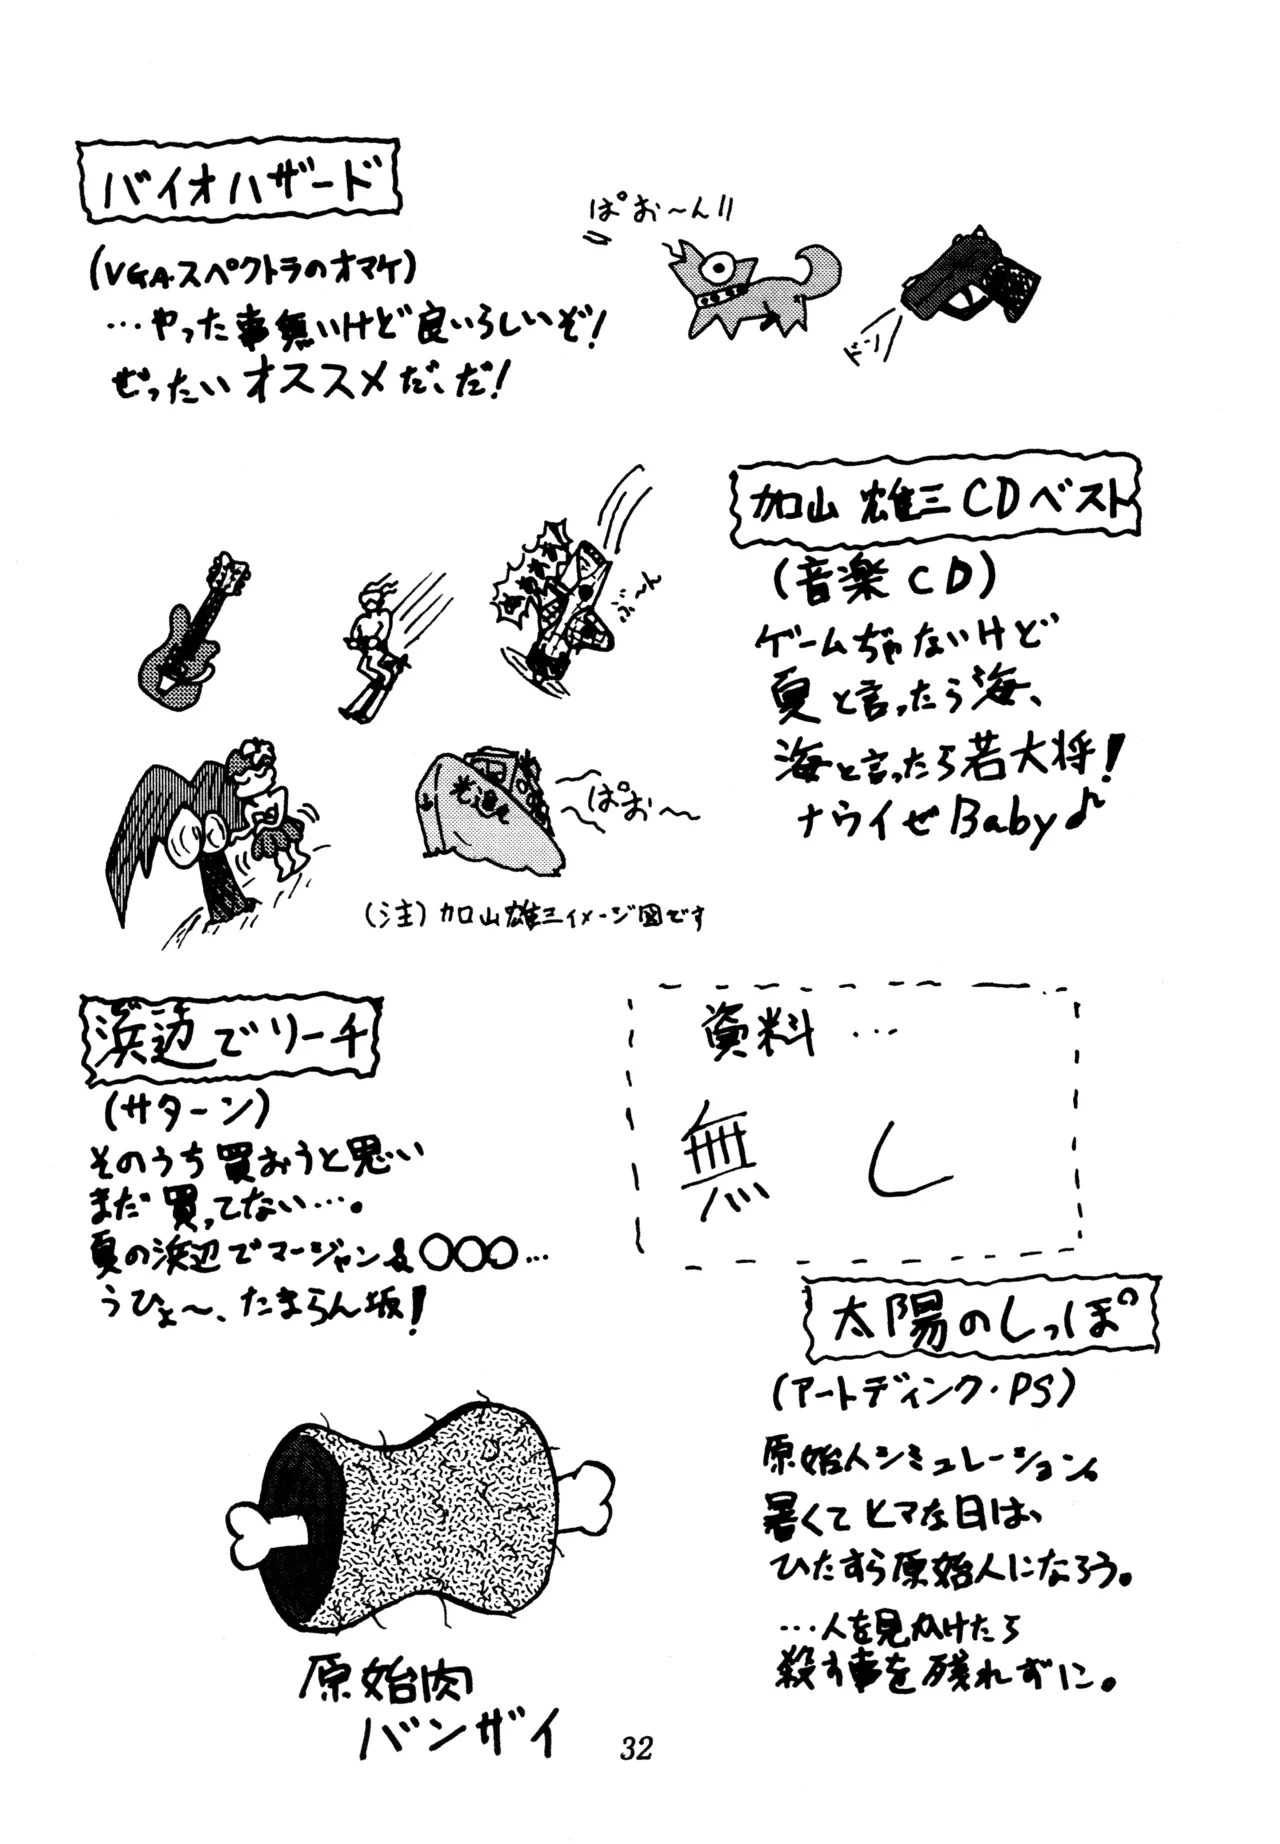 バイオハザード
(VGAスペクトラのオマケ)
…やった事無いけど良いらしいぞ!
ぜったいオススメだ、だ!
ぱお〜ん!!
ドン
加山雄三CDベスト
(音楽CD)
ゲームぢゃないけど
夏と言ったら海、
海と言ったら若大将!
ナウイぜBaby♪
ぶ〜ん
光進丸
ぱお〜
(注)加山雄三イメージ図です
浜辺でリーチ
(サターン)
そのうち買おうと思い
まだ買ってない…。
夏の浜辺でマージャン&〇〇〇…
うひょ〜、たまらん坂!
資料…
無し
太陽のしっぽ
(アートディンク・PS)
原始人シミュレーション。
暑くてヒマな日は、
ひたすら原始人になろう。
…人を見かけたら
殺す事を忘れずに。
原始肉
バンザイ
32